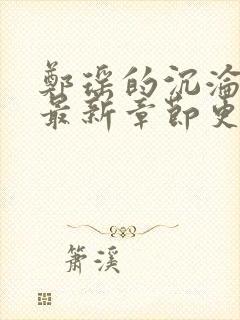 鄭瑶的沉淪
最新章節更
簫溪